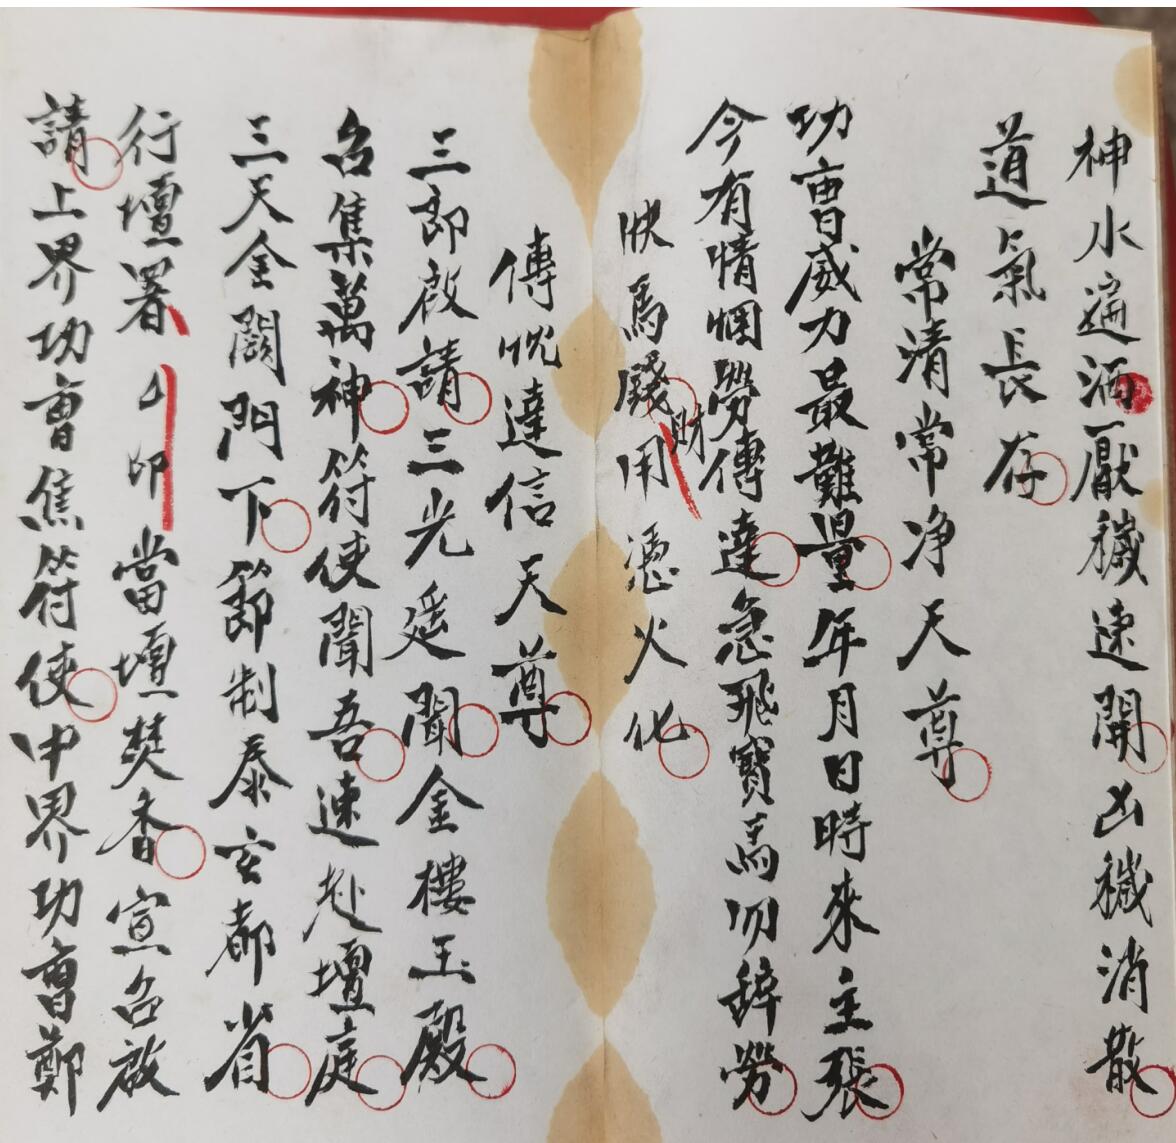 神水遍洒厭穢速開凶穢消散
道氣長存
常清常净天尊
功曹威力最難量年月日時來主張
今有情悃勞傳達急飛寶馬勿辞勞
状馬錢財用憑火化
傳悦達信天尊
三郎啟請三光遥聞金樓玉殿
名集萬神符使聞吾速赴壇庭
三天金闕門下節制泰玄都省
行壇署 印當壇焚香宣名啟
請上界功曹焦符使中界功曹鄭